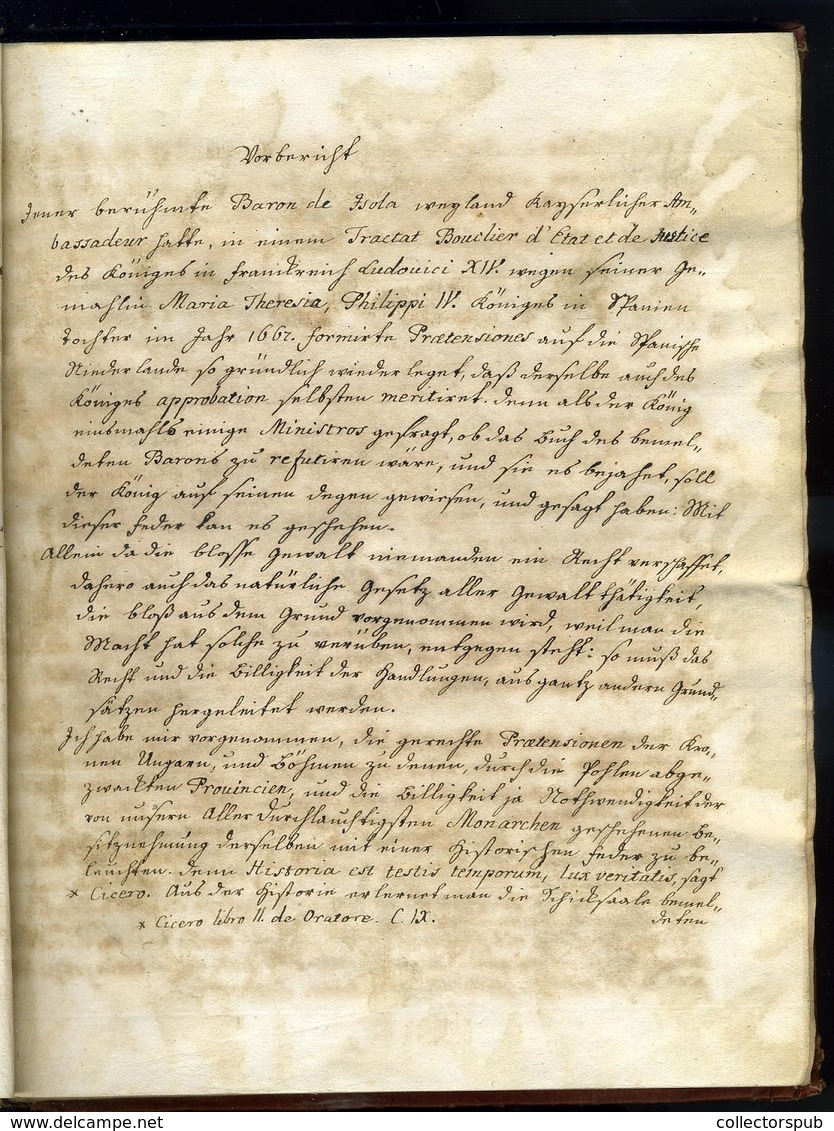 Vorbericht
Jener berühmte Baron de Isola weyland Kayserlicher Am„
bassadeur hatte, in einem Tractat Bouclier d'Etat et de Justice
des Königes in Frankreich Ludovici XIV. wegen seiner Ge„
mahlin Maria Theresia, Philippi IV. Königes in Spanien
Tochter im Jahr 1667. formirte Prætensiones auf die Spanische
Niederlande so gründlich wiederleget, daß derselbe auch des
Königes approbation selbsten meritiret. denn als der König
einsmahls einige Ministros gefragt, ob das Buch des bemel„
deten Barons zu refutiren wäre, und sie es bejahet, soll
der König auf seinen Degen gewiesen, und gesagt haben: Mit
dieser Feder kan es geschehen.
Allein da die blosse Gewalt niemanden ein Recht verschaffet,
dahero auch das natürliche Gesetz aller Gewaltthätigkeit,
die bloß aus dem Grund vorgenommen wird, weil man die
Macht hat solche zu verüben, entgegen steht: so muß das
Recht und die Billigkeit der Handlungen, aus gantz andern Grund„
sätzen hergeleitet werden.
Ich habe mir vorgenommen, die gerechte Prætensionen der Kro„
nen Ungarn, und Böhmen zu denen, durch die Pohlen abge„
zwackten Provincien, und die Billigkeit ja Nothwendigkeit der
von unsern Allerdurchlauchtigsten Monarchen geschehenen be„
sitznehmung derselben mit einer Historischen Feder zu be„
leuchten. denn Historia est testis temporum, lux veritatis, sagt
* Cicero. Aus der Historie erlernet man die Schicksaale bemel„
deten
* Cicero libro II. de Oratore. C. IX.
collectorspub
www.delcampe.net